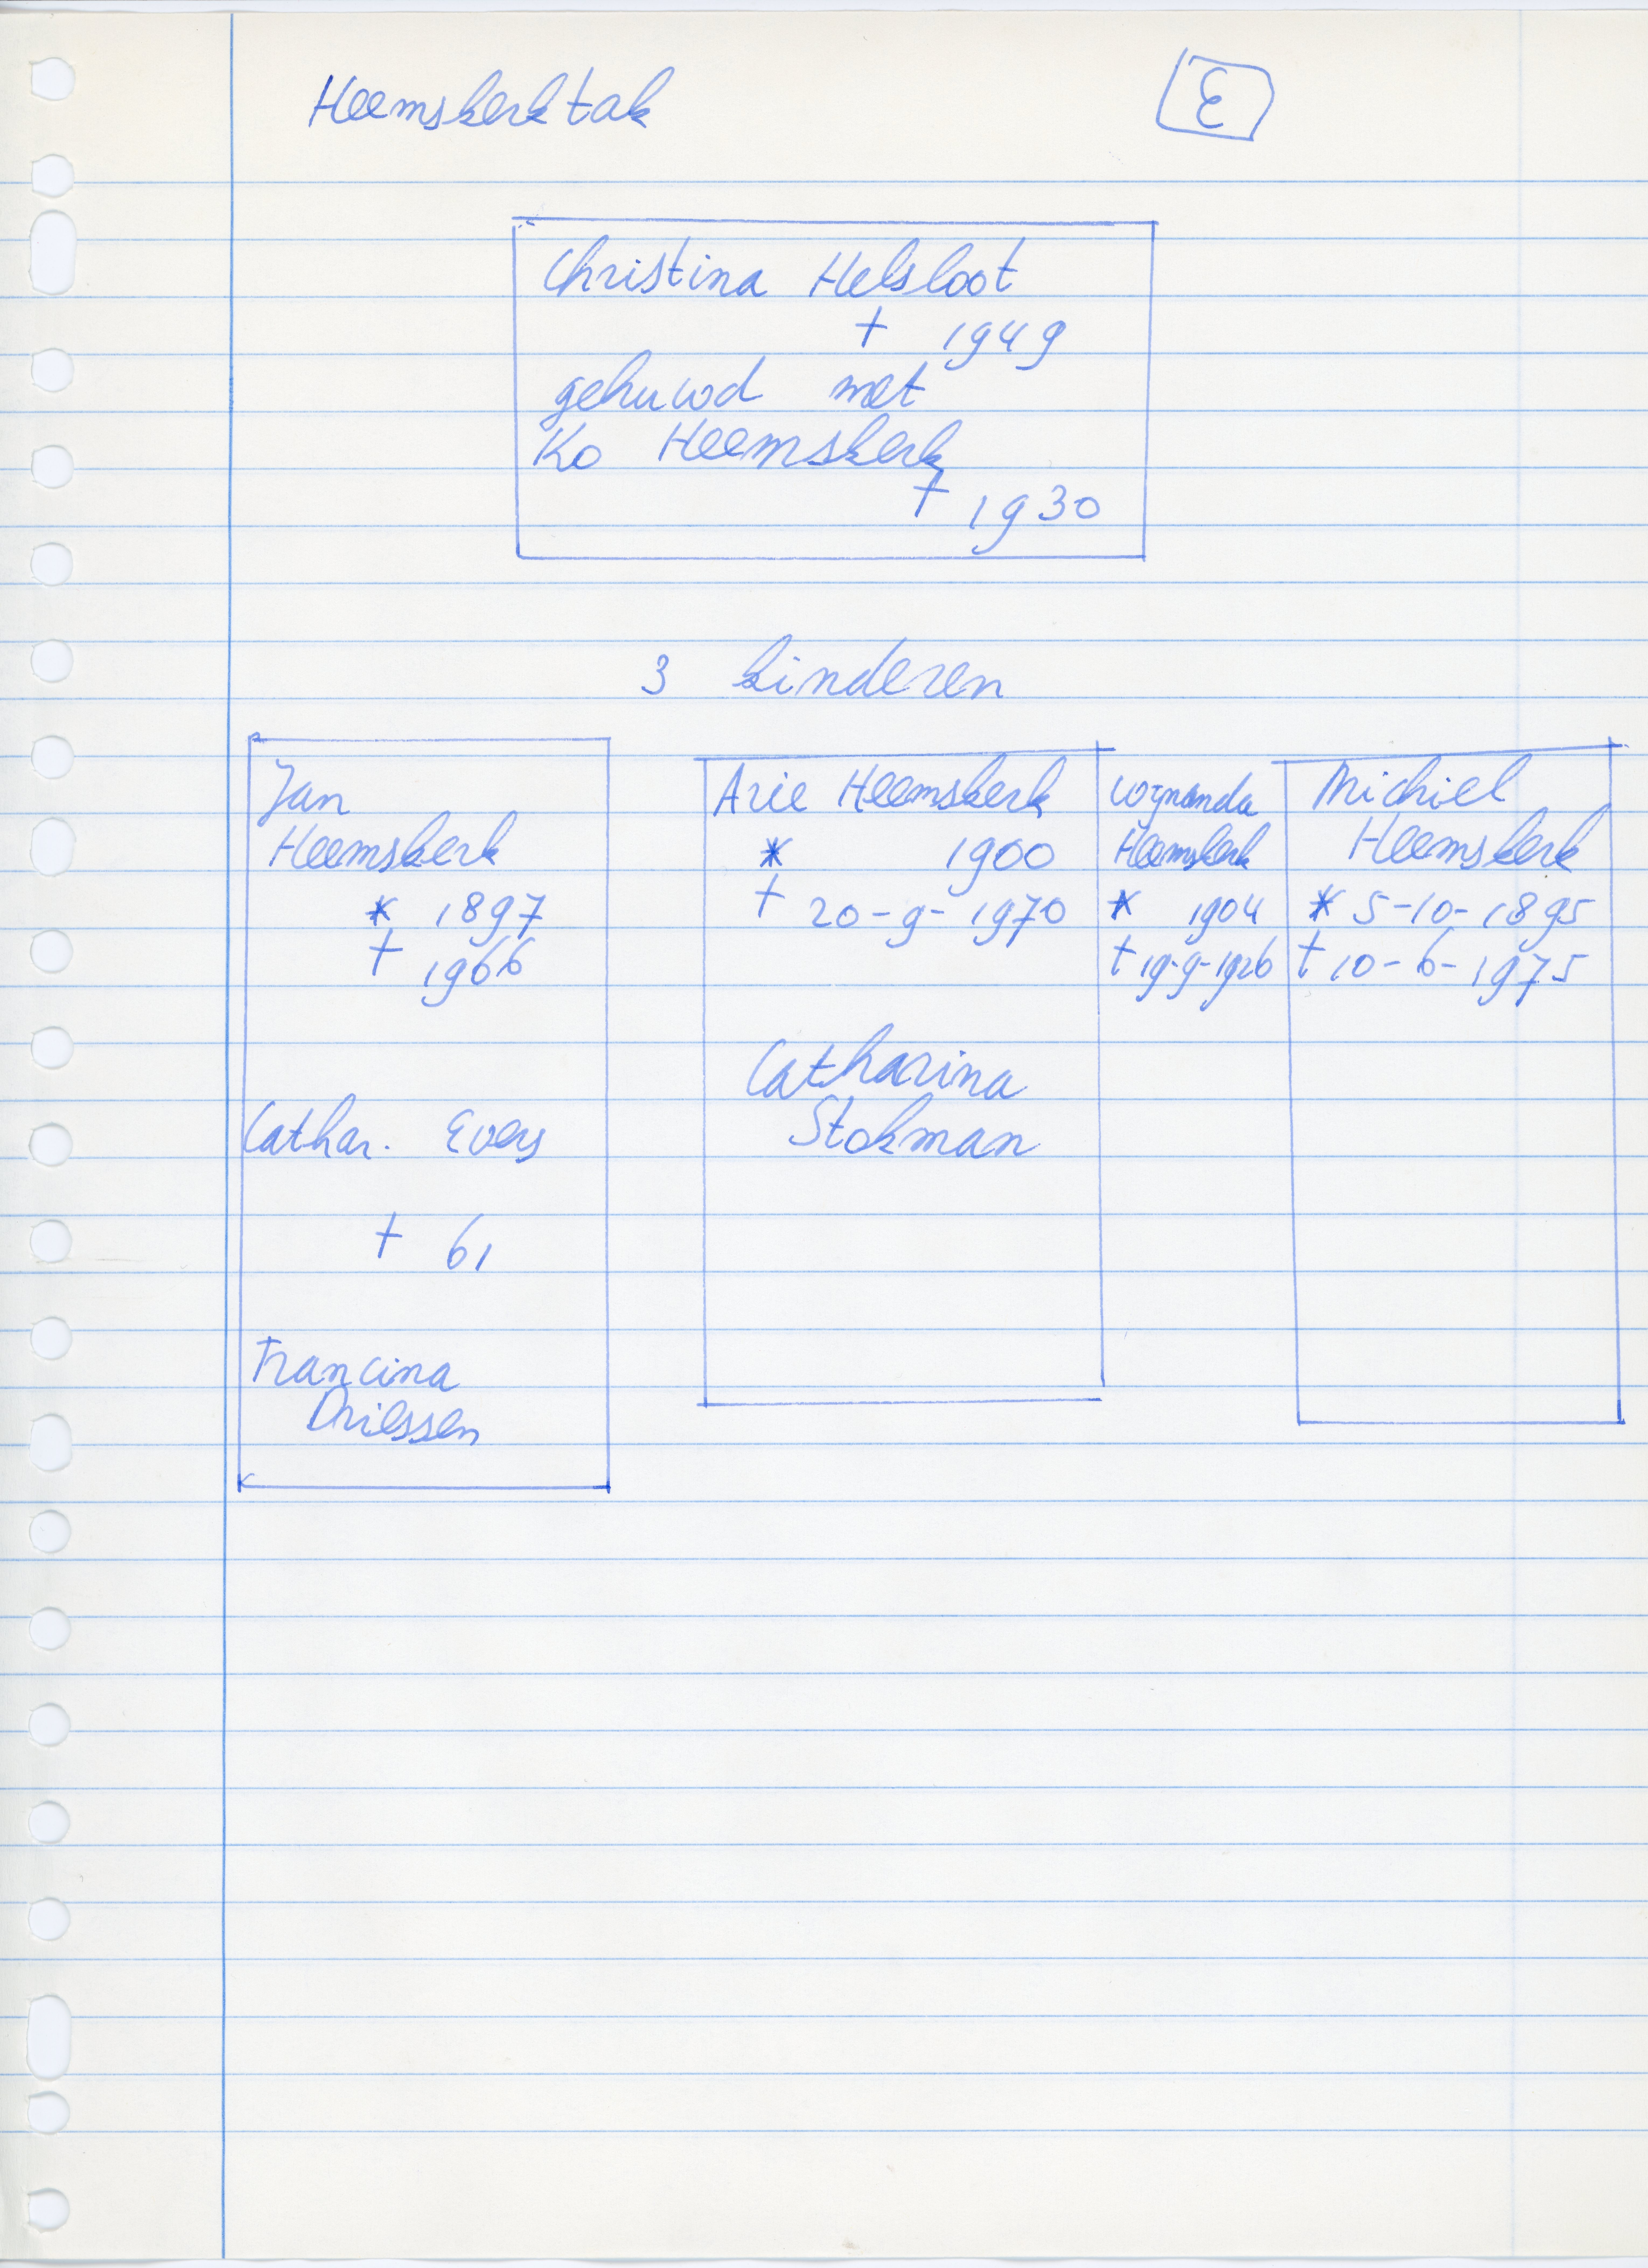 Heemskerk tak
E
Christina Helsloot
† 1949
gehuwd met
Ko Heemskerk
† 1930
3 kinderen
Jan
Heemskerk
* 1897
† 1966
Cathar. Evers
† 61
Francina
Driessen
Arie Heemskerk
* 1900
† 20-9-1970
Catharina
Stokman
Wijnanda
Heemskerk
* 1904
† 19-9-1926
Michiel
Heemskerk
* 5-10-1895
† 10-6-1975